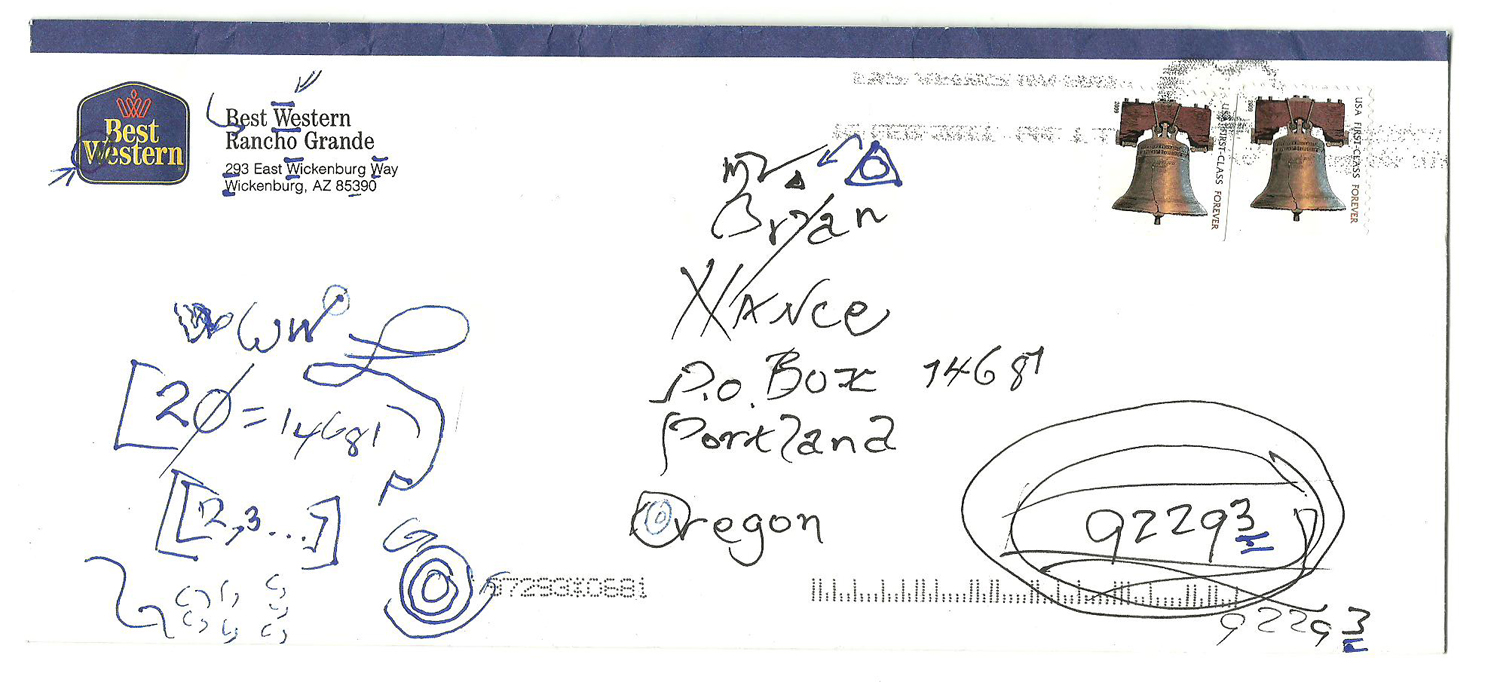 Best
Western
Best Western
Rancho Grande
293 East Wickenburg Way
Wickenburg, AZ 85390
USA FIRST-CLASS FOREVER
USA FIRST-CLASS FOREVER
Bryan
Hance
P.O. Box 14681
Portland
Oregon
92293
92293
WW
[20 = 14681
[[2,3...]
97293%0681